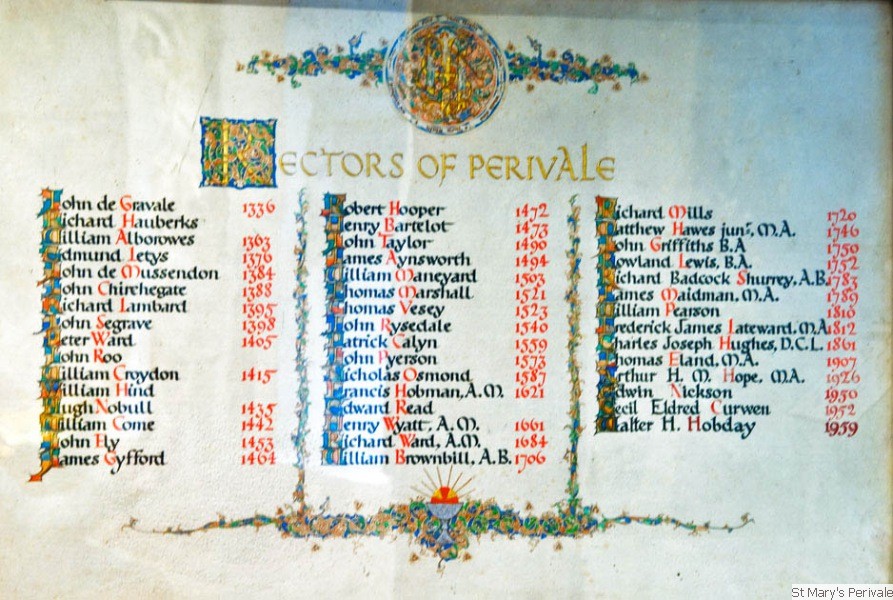 RECTORS OF PERIVALE
John de Gravale 1336
Richard Hauberks
William Alborowes 1363
Edmund Letys 1376
John de Mussendon 1384
John Chirchegate 1388
Richard Lambard 1395
John Segrave 1398
Peter Ward 1405
John Roo
William Croydon 1415
William Hind
Hugh Nobull 1435
William Come 1442
John Ely 1453
James Gyfford 1464
Robert Hooper 1472
Henry Bartelot 1473
John Taylor 1490
James Aynsworth 1494
William Maneyard 1503
Thomas Marshall 1521
Thomas Vesey 1523
John Rysedale 1540
Patrick Calyn 1559
John Pyerson 1573
Nicholas Osmond 1587
Francis Hobman, A.M. 1621
Edward Read
Henry Wyatt, A.M. 1661
Richard Ward, A.M. 1684
William Brownbill, A.B. 1706
Richard Mills 1720
Matthew Hawes junr, M.A. 1746
John Griffiths B.A 1750
Rowland Lewis, B.A. 1752
Richard Badcock Shurrey, A.B. 1783
James Maidman, M.A. 1789
William Pearson 1810
Frederick James Lateward, M.A. 1812
Charles Joseph Hughes, D.C.L. 1861
Thomas Eland, M.A. 1907
Arthur H. M. Hope, M.A. 1926
Edwin Nickson 1950
Cecil Eldred Curwen 1952
Walter H. Hobday 1959
St Mary's Perivale